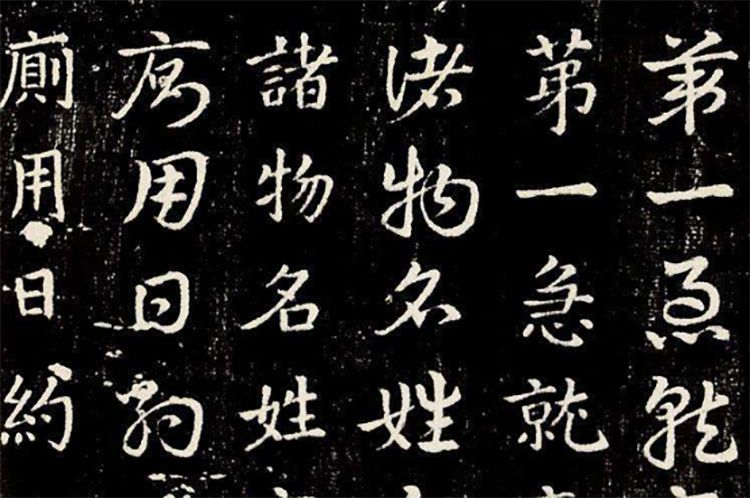 第一急就
第一急就
諸物名姓
諸物名姓
廁用日約
廁用日約